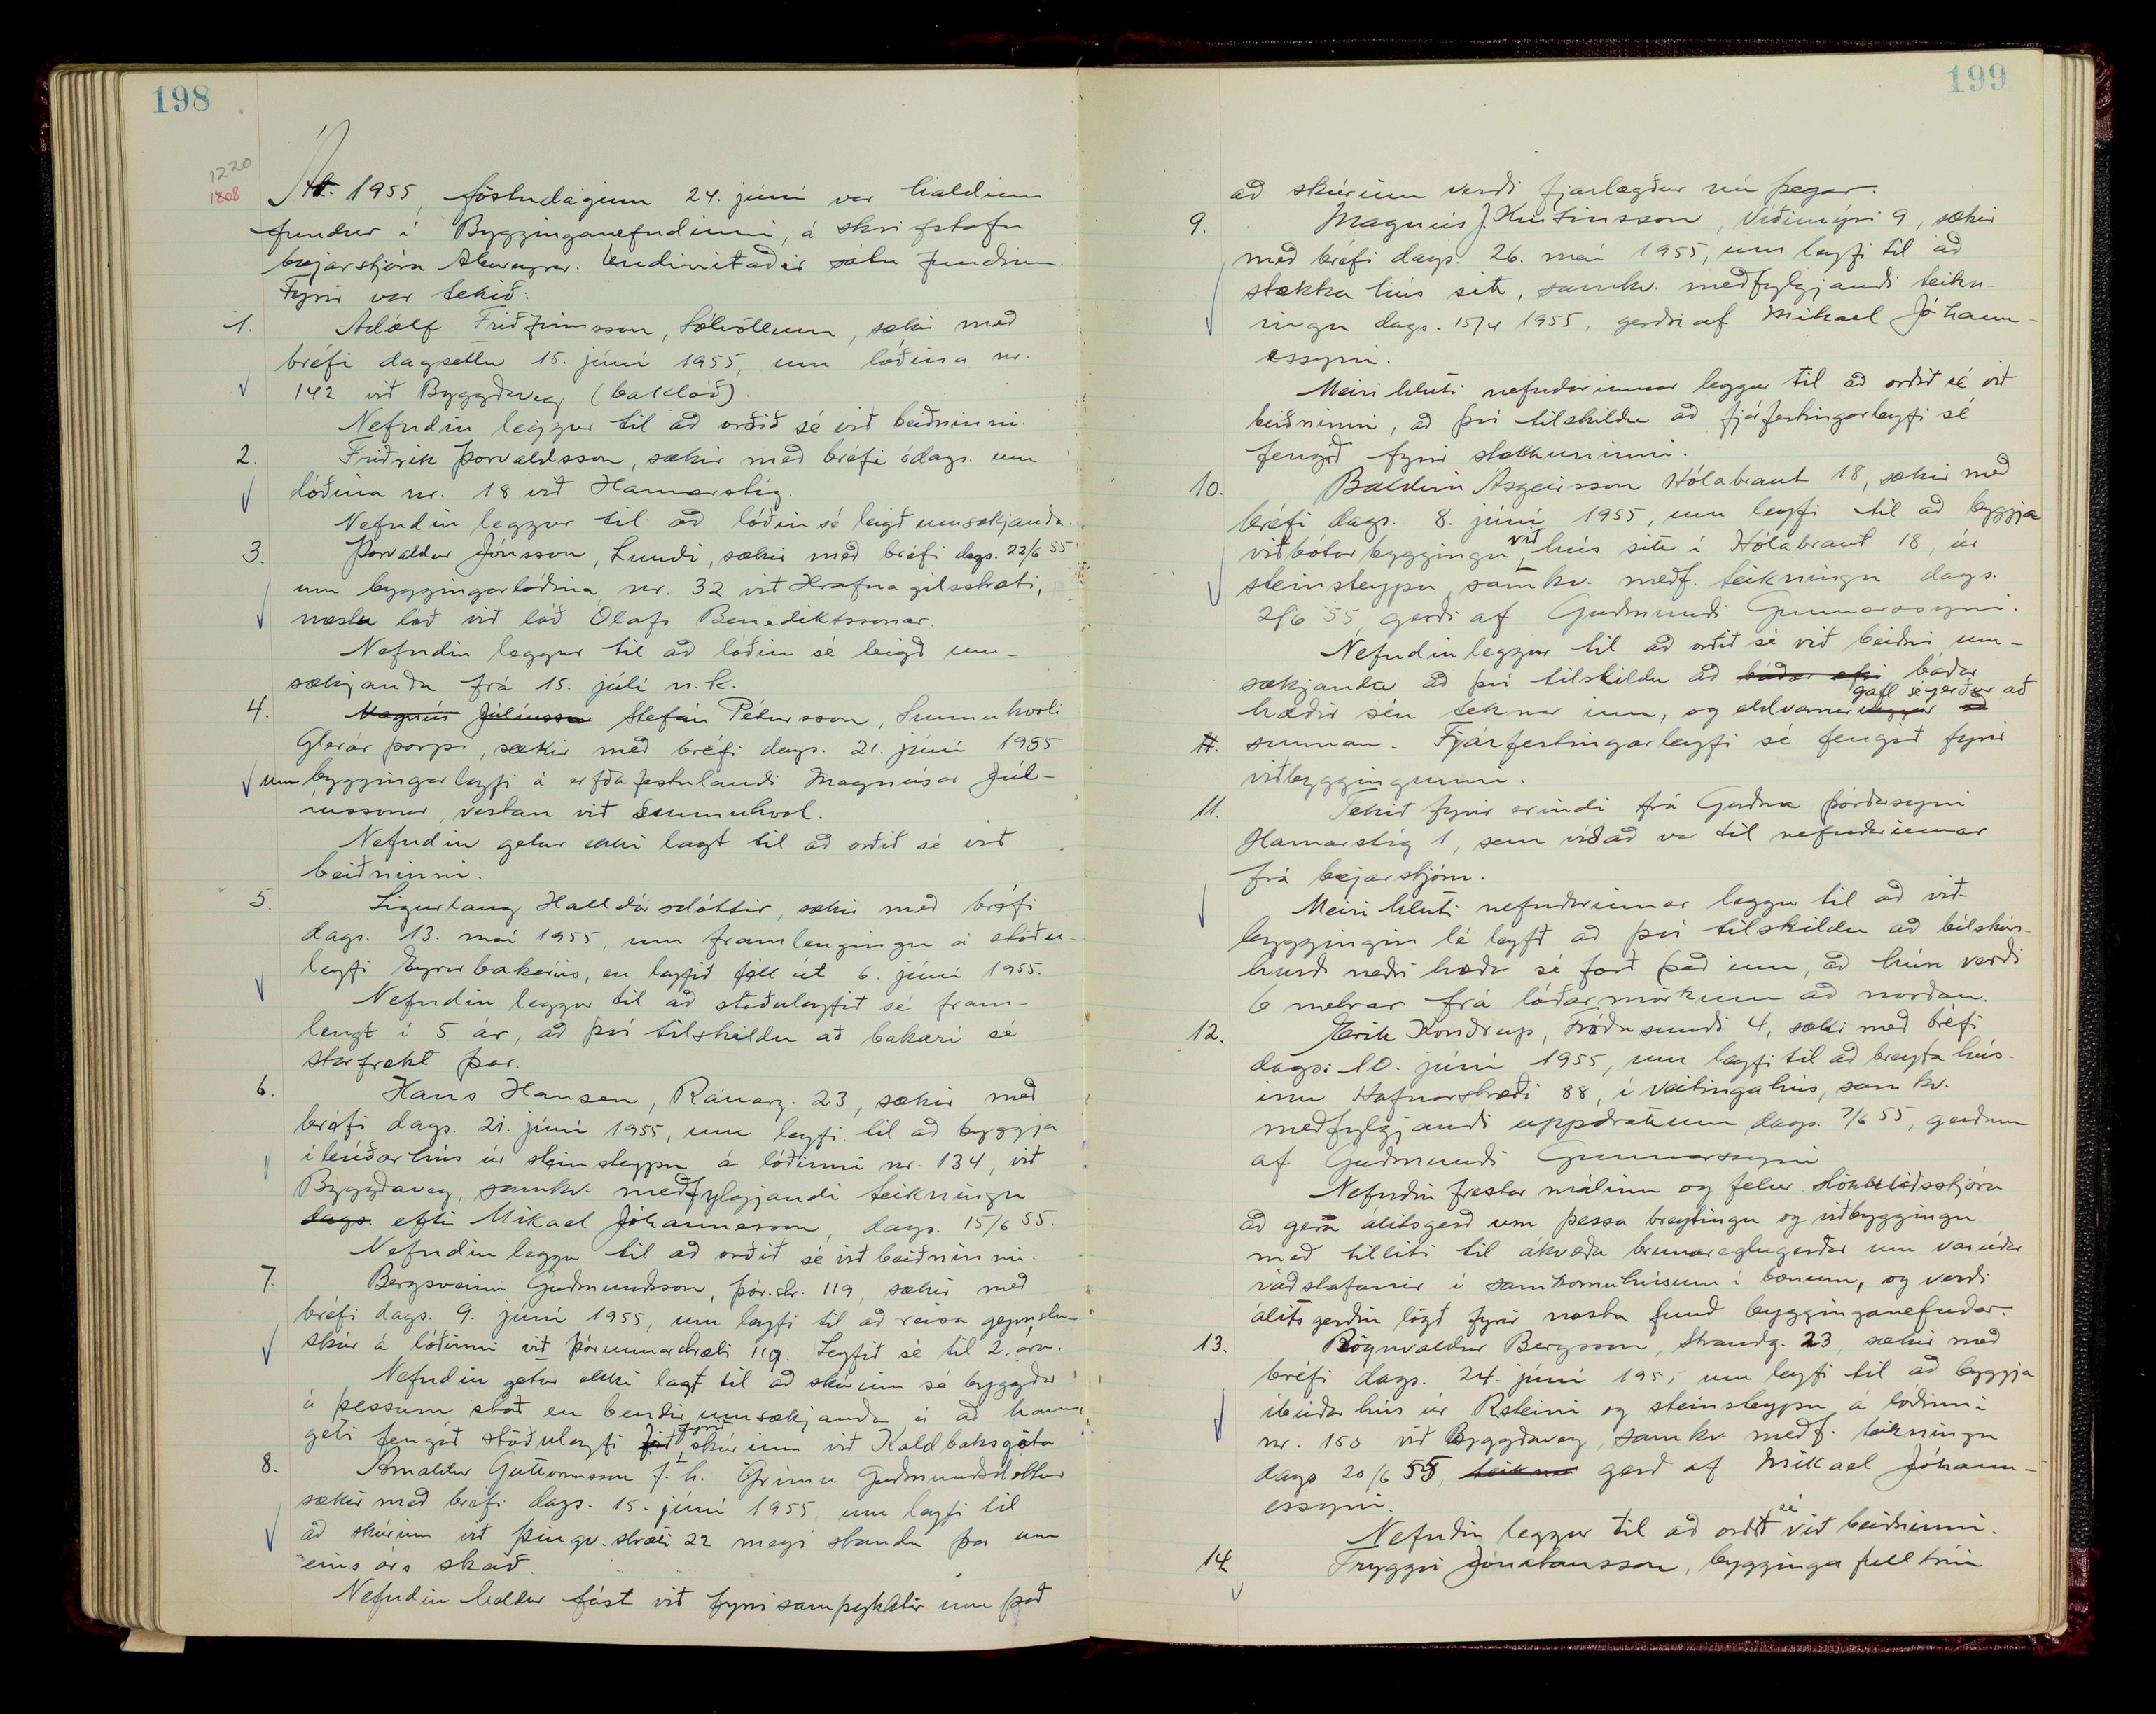 198
1220
1808
Ár 1955, föstudaginn 24. júní var haldinn
fundur í Bygginganefndinni, á skrifstofu
bæjarstjóra Akureyrar. Undirritaðir sátu fundinn.
Fyrir var tekið:
1. Adólf Friðfinnsson, Sólvöllum, sækir með
bréfi dagsettu 15. júní 1955, um lóðina nr.
142 við Byggðaveg (baklóð).
Nefndin leggur til að orðið sé við beiðninni.
2. Friðrik Þorvaldsson, sækir með bréfi ódags. um
lóðina nr. 18 við Hamarstíg.
Nefndin leggur til að lóðin sé leigð umsækjanda.
3. Þorvaldur Jónsson, Lundi, sækir með bréfi dags. 22/6 55
um byggingarlóðina nr. 32 við Hrafnagilsstræti,
næstu lóð við lóð Ólafs Benediktssonar.
Nefndin leggur til að lóðin sé leigð um-
sækjanda frá 15. júlí n.k.
4. Magnús Júlíusson Stefán Pétursson, Sunnuhvoli
Glerárþorpi, sækir með bréfi dags. 21. júní 1955
um byggingarleyfi á erfðafestulandi Magnúsar Júl-
íussonar, vestan við Sunnuhvol.
Nefndin getur ekki lagt til að orðið sé við
beiðninni.
5. Sigurlaug Halldórsdóttir, sækir með bréfi
dags. 13. maí 1955, um framlengingu á stöðu-
leyfi Eyrarbakarís, en leyfið féll út 6. júní 1955.
Nefndin leggur til að stöðuleyfið sé fram-
lengt í 5 ár, að því tilskildu að bakarí sé
starfrækt þar.
6. Hans Hansen, Ránarg. 23, sækir með
bréfi dags. 21. júní 1955, um leyfi til að byggja
íbúðarhús úr steinsteypu á lóðinni nr. 134, við
Byggðaveg, samkv. meðfylgjandi teikningu
dags. eftir Mikael Jóhannesson, dags. 15/6 55.
Nefndin leggur til að orðið sé við beiðninni.
7. Bergsveinn Guðmundsson, Þór.str. 119, sækir með
bréfi dags. 9. júní 1955, um leyfi til að reisa geymslu-
skúr á lóðinni við Þórunnarstræti 119. Leyfið sé til 2. ára.
Nefndin getur ekki lagt til að skúrinn sé byggður
á þessum stað en bendir umsækjanda á að hann
geti fengið stöðuleyfi fyrir skúrinn við Kaldbaksgötu
8. Arnaldur Guttormsson f.h. Grímu Guðmundsdóttur
sækir með bréfi dags. 15. júní 1955, um leyfi til
að skúrinn við Þingv.stræti 22 megi standa þar um
eins árs skeið.
Nefndin heldur fast við fyrri samþykktir um það
199
að skúrinn verði fjarlægður nú þegar.
9. Magnús J. Kristinsson, Víðimýri 9, sækir
með bréfi dags. 26. maí 1955, um leyfi til að
stækka hús sitt, samkv. meðfylgjandi teikn-
ingu dags. 15/4 1955, gerðri af Mikael Jóhann-
essyni.
Meiri hluti nefndarinnar leggur til að orðið sé við
beiðninni, að því tilskildu að fjárfestingarleyfi sé
fengið fyrir stækkuninni.
10. Baldvin Ásgeirsson Hólabraut 18, sækir með
bréfi dags. 8. júní 1955, um leyfi til að byggja
viðbótarbyggingu við hús sitt í Hólabraut 18, úr
steinsteypu, samkv. meðf. teikningu dags.
2/6 55, gerði af Guðmundi Gunnarssyni.
Nefndin leggur til að orðið sé við beiðni um-
sækjanda að því tilskildu að báðar efri báðar
hæðir séu teknar inn, og eldvarnar gafl sé gerður að
11. sunnan. Fjárfestingarleyfi sé fengið fyrir
viðbyggingunni.
11. Tekið fyrir erindi frá Guðna Þórðarsyni
Hamarstíg 1, sem vísað var til nefndarinnar
frá bæjarstjórn.
Meiri hluti nefndarinnar leggur til að við-
byggingin sé leyfð að því tilskildu að bílskúrs-
hurð neðri hæðar sé færð það inn, að hún verði
6 metrar frá lóðarmörkum að norðan.
12. Erik Kondrup, Fróðasundi 4, sækir með bréfi
dags. 10. júní 1955, um leyfi til að breyta hús-
inu Hafnarstræti 88, í veitingahús, samkv.
meðfylgjandi uppdráttum dags. 7/6 55, gerðum
af Guðmundi Gunnarssyni
Nefndin frestar málinu og felur slökkviliðsstjóra
að gera álitsgerð um þessa breytingu og viðbyggingu
með tilliti til ákvæða brunareglugerðar um varúðar
ráðstafanir í samkomuhúsum í bænum, og verði
álitsgerðin lögð fyrir næsta fund bygginganefndar.
13. Rögnvaldur Bergsson, Strandg. 23, sækir með
bréfi dags. 24. júní 195, um leyfi til að byggja
íbúðarhús úr Rsteini og steinsteypu á lóðinni
nr. 150 við Byggðaveg, samkv. meðf. teikningu
dags 20/6 55, teiknu gerð af Mikael Jóhann-
essyni.
Nefndin leggur til að orðið sé við beiðninni.
14. Tryggvi Jónatansson, byggingafulltrúi